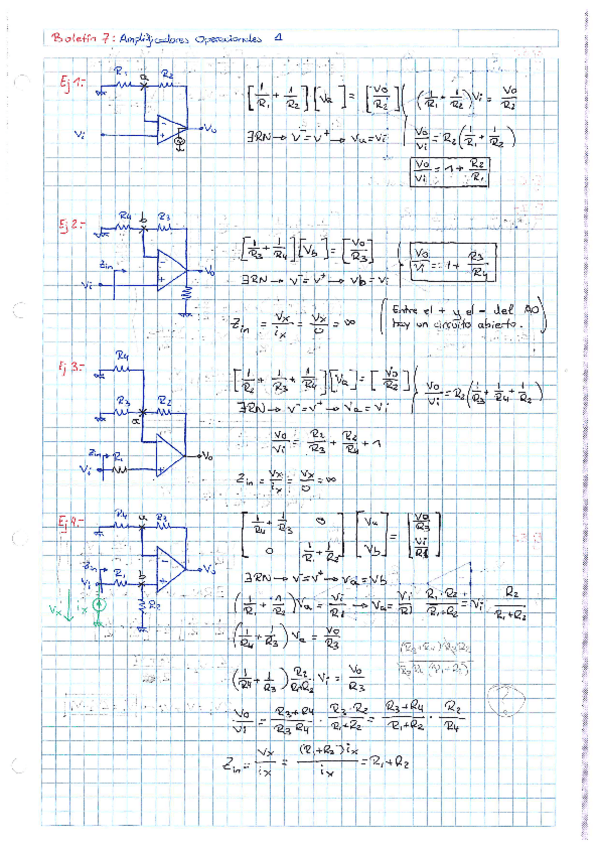 Boletín 7: Amplificadores Operacionales 1
Ej 1:-
R₁ a R₂
Vi
Vo
[1/R₁ + 1/R₂][Va] = [Vo/R₂]
(1/R₁ + 1/R₂)Vi = Vo/R₂
∃RN → V⁻=V⁺ → Va=Vi
Vo/Vi = R₂(1/R₁ + 1/R₂)
Vo/Vi = 1 + R₂/R₁
Ej 2:-
R₄ b R₃
Zin
Vi
Vo
[1/R₃ + 1/R₄][Vb] = [Vo/R₃]
Vo/Vi = 1 + R₃/R₄
∃RN → V⁻=V⁺ → Vb=Vi
Zin = Vx/ix = Vx/0 = ∞
(Entre el + y el - del AO
hay un circuito abierto.)
Ej 3:-
R₄
R₃ a R₂
Zin R₁
Vi
Vo
[1/R₂ + 1/R₃ + 1/R₄][Va] = [Vo/R₂]
Vo/Vi = R₂(1/R₃ + 1/R₄ + 1/R₂)
∃RN → V⁻=V⁺ → Va=Vi
Vo/Vi = R₂/R₃ + R₂/R₄ + 1
Zin = Vx/ix = Vx/0 = ∞
Ej 4:-
R₄ a R₃
Zin
Vi R₁ b
Vo
R₂
Vx ix
[1/R₄ + 1/R₃ 0] [Va] = [Vo/R₃]
[0 1/R₁ + 1/R₂] [Vb] [Vi/R₁]
∃RN → V⁻=V⁺ → Va=Vb
(1/R₁ + 1/R₂)Va = Vi/R₁ → Va = Vi/R₁ · R₁·R₂/R₁+R₂ = Vi · R₂/R₁+R₂
(1/R₄ + 1/R₃)Va = Vo/R₃
(1/R₄ + 1/R₃) R₂/R₁+R₂ · Vi = Vo/R₃
Vo/Vi = R₃+R₄/R₃R₄ · R₃·R₂/R₁+R₂ = R₃+R₄/R₁+R₂ · R₂/R₄
Zin = Vx/ix = (R₁+R₂)ix/ix = R₁+R₂